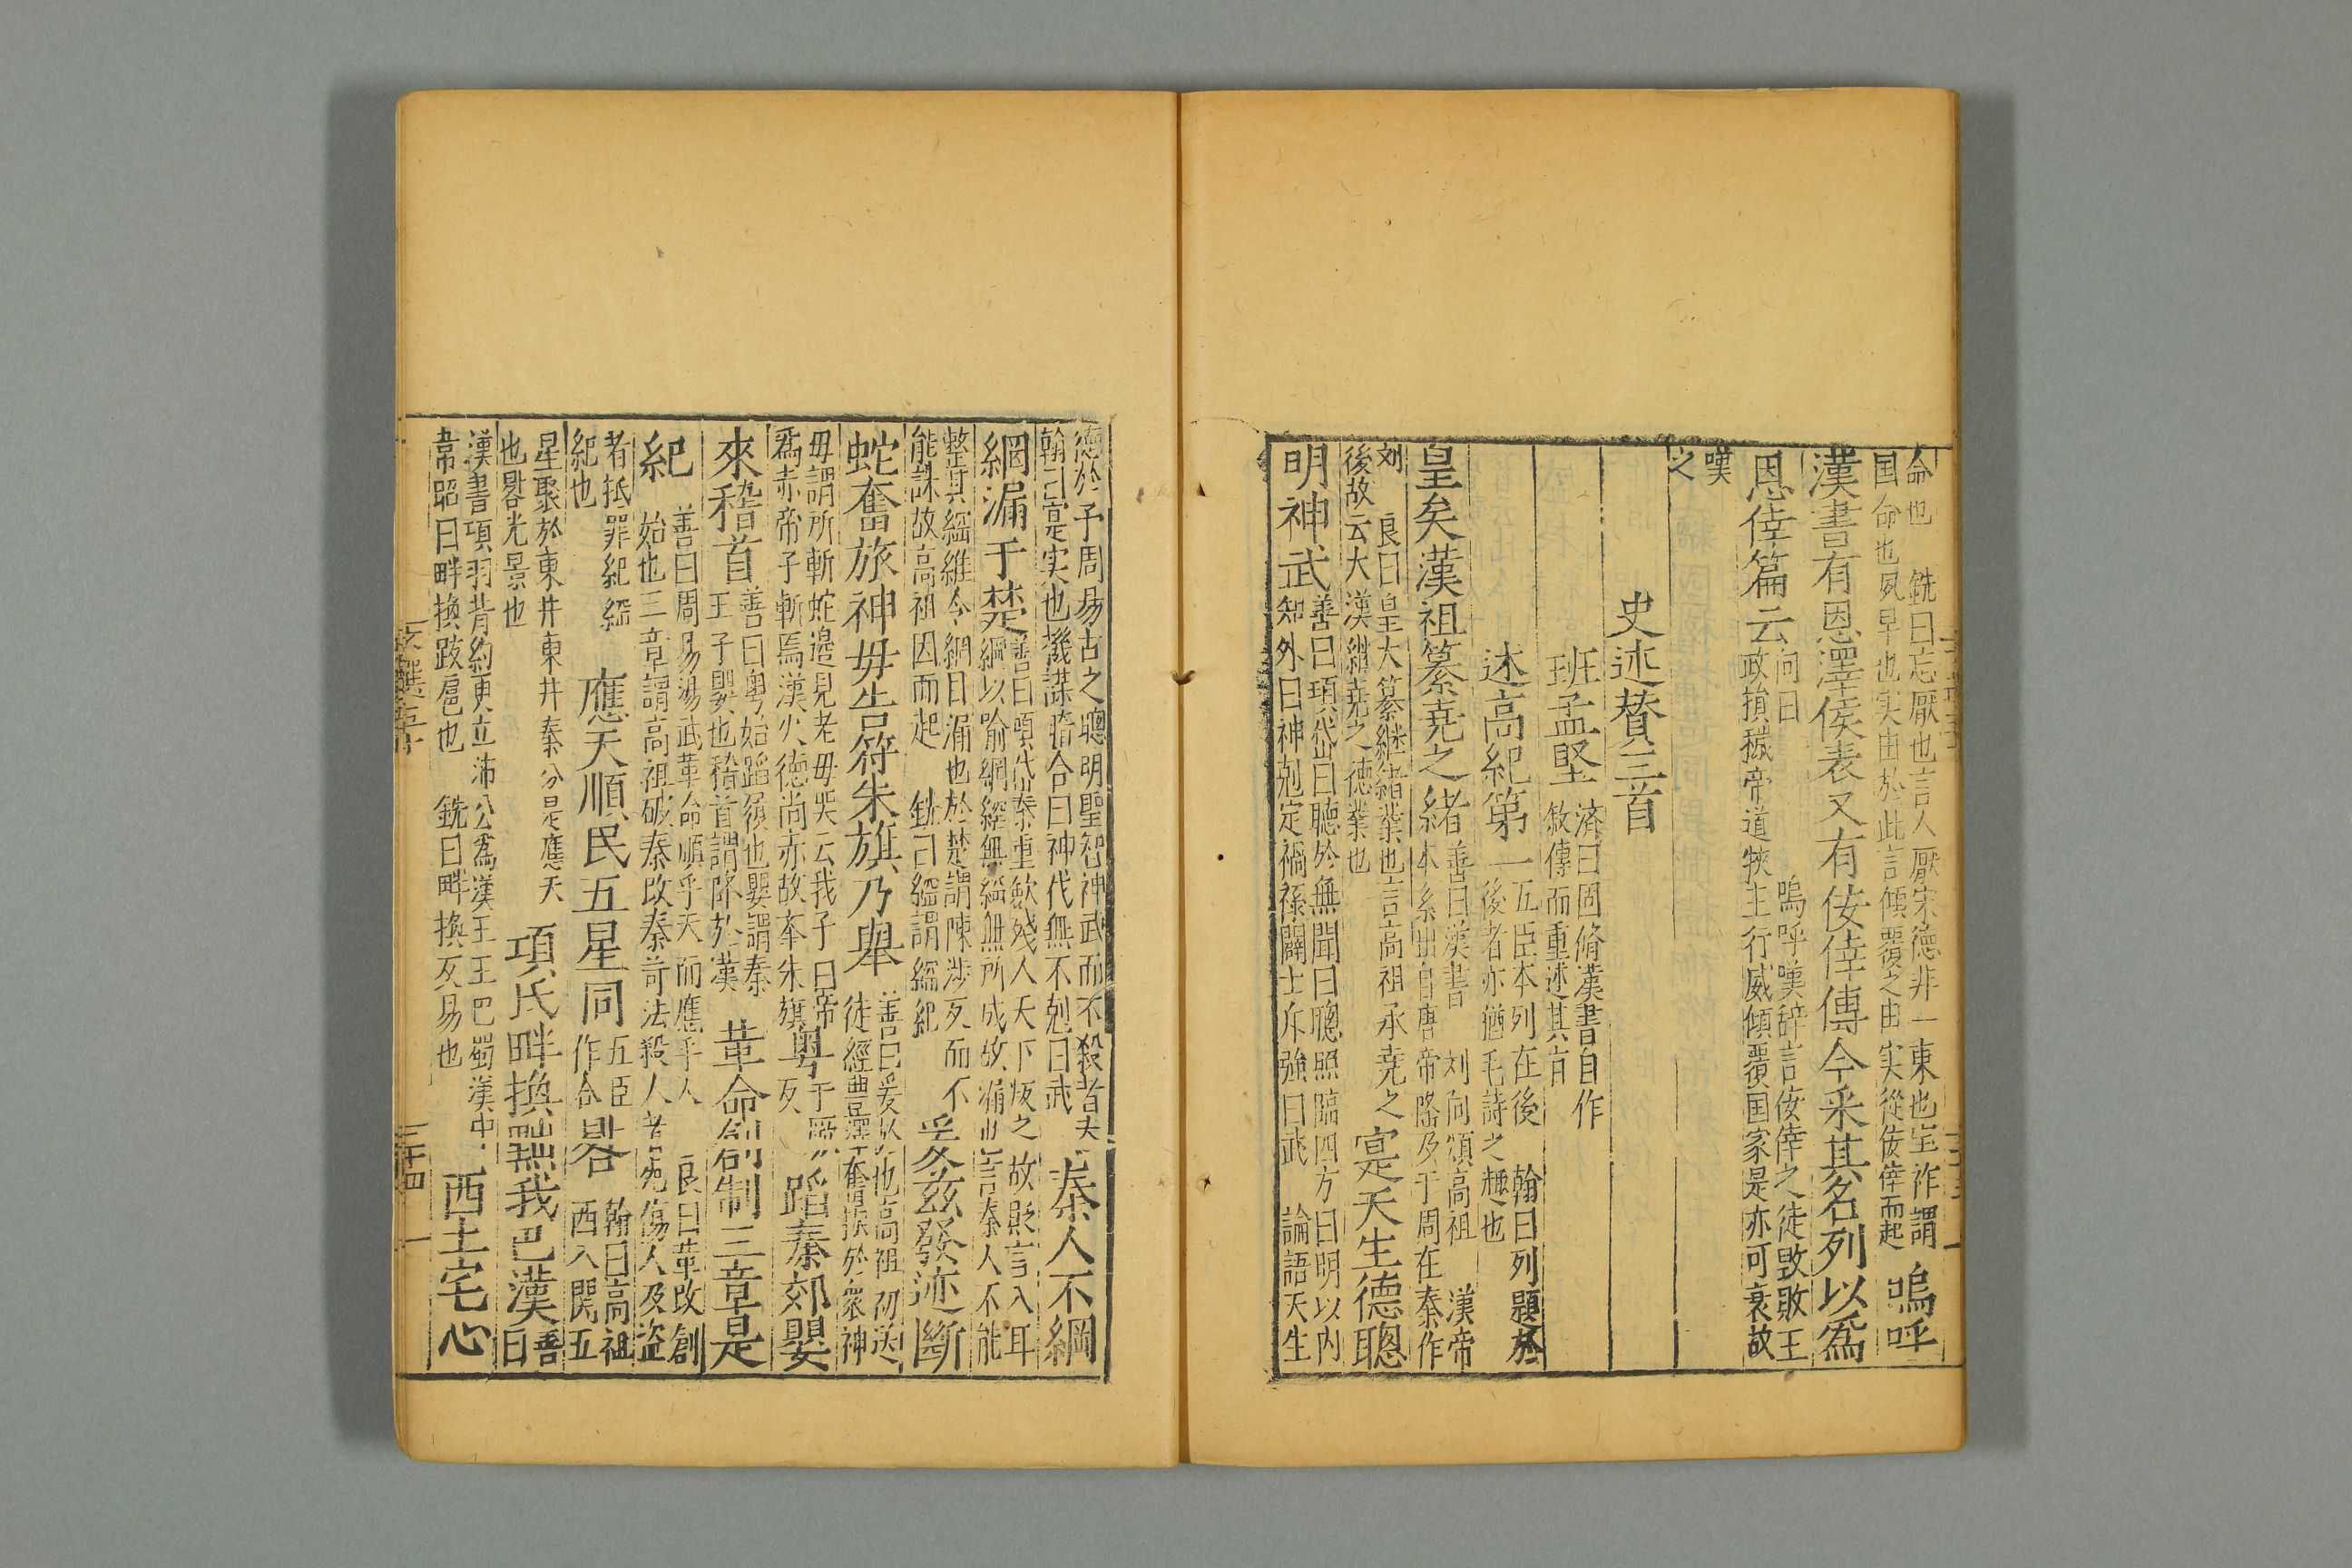 命也 銑曰忘厭也言人厭宋德非一東也宝祚謂
国命也夙早也実由於此言傾覆之由実從侫倖而起
嗚呼
漢書有恩澤侯表又有侫倖傳今采其名列以爲
恩倖篇云
向曰 嗚呼嘆辞言侫倖之徒毀敗王
政損穢帝道狹主行威傾覆国家是亦可哀故
嘆
之
史述贊三首
班孟堅
済曰固脩漢書自作
敘傳而重述其㫖
述高紀第一
五臣本列在後 翰曰列題於
後者亦猶毛詩之趣也
皇矣漢祖纂堯之緒
善曰漢書 刘向頌高祖 漢帝
本系出自唐帝降及于周在秦作
刘 良曰皇大纂継緒業也言高祖承堯之
後故云大漢継堯之徳業也
寔天生德聰
明神武
善曰項岱曰聴於無聞曰聰照臨四方曰明以内
知外曰神剋定禍孫闢士斥強曰武 論語天生
徳於予周易古之聰明聖智神武而不殺者夫
翰曰寔実也機謀暗合曰神代無不剋曰武
秦人不綱
網漏于楚
善曰項岱秦重歛殘人天下叛之 故貶言入耳
綱以喻網經無綱無所成故漏也言秦人不能
整其綱維令網目漏也於楚謂陳涉反而不
能誅故高祖因而起 銑曰綱謂綱紀
爰茲發迹斷
蛇奮旅神毋告符朱旗乃舉
善曰爰於也高祖初送
徒經豊澤奮提於衆神
毋謂所斬蛇邉見老毋哭云我子曰帝
爲赤帝子斬焉漢火徳尚赤故奉朱旗
粤蹈秦郊嬰
來稽首
善曰粤始蹈履也嬰謂秦
王子嬰也稽首謂降於漢
革命創制三章是
紀
善曰周易湯武革命順乎天而應乎人 良曰革改創
始也三章謂高祖破秦改秦苛法殺人者死傷人及盗
者抵罪紀綱
紀也
應天順民五星同
五臣
作合
晷
翰曰高祖
西入関五
星聚於東井東井秦分是應天
也晷光景也
項氏畔換黜我巴漢
善
曰
漢書項羽背約更立沛公爲漢王王巴蜀漢中
韋昭曰畔換跋扈也 銑曰畔換反易也
西土宅心
文選五十
三十四